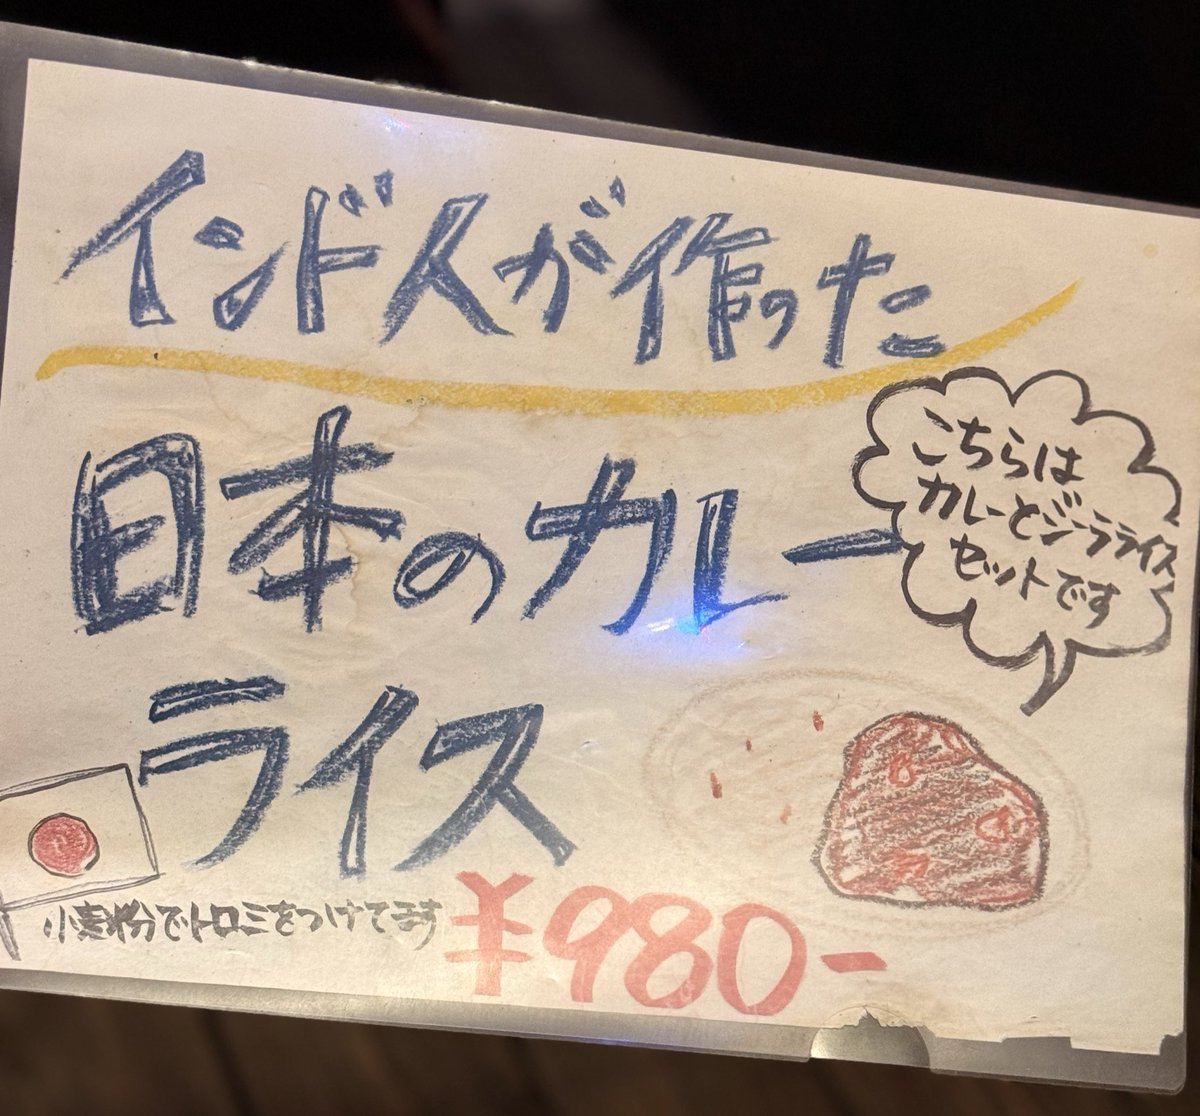 インド人が作った
日本のカレー
ライス
こちらは
カレーとジーラライス
セットです
小麦粉でトロミをつけてます
¥980-